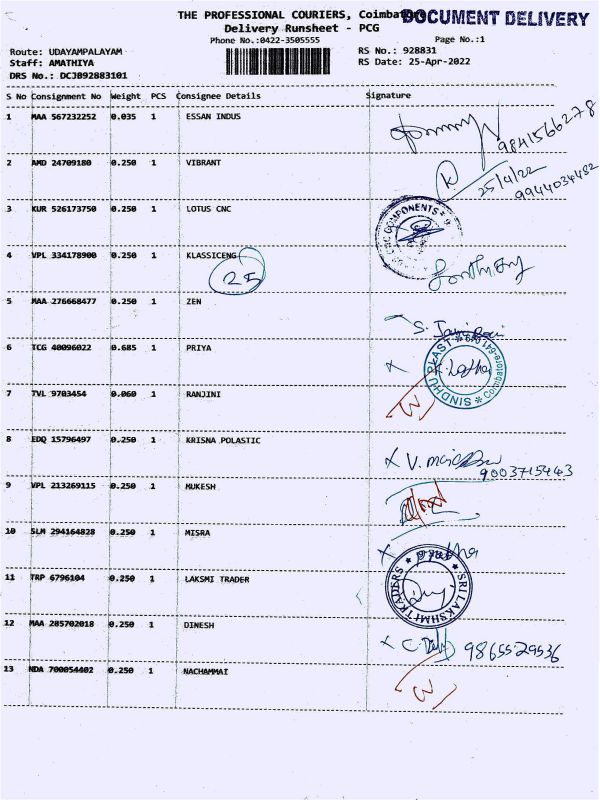 THE PROFESSIONAL COURIERS, Coimbatore
DOCUMENT DELIVERY
Delivery Runsheet - PCG
Phone No.:0422-3505555
Page No.:1
Route: UDAYAMPALAYAM
RS No.: 928831
Staff: AMATHIYA
RS Date: 25-Apr-2022
DRS No.: DCJB92883101
S No Consignment No Weight PCS Consignee Details Signature
1 MAA 567232252 0.035 1 ESSAN INDUS
9841566278
2 AMD 24709180 0.250 1 VIBRANT
25/4/22
9944034482
3 KUR 526173750 0.250 1 LOTUS CNC
CNC COMPONENTS
4 VPL 334178900 0.250 1 KLASSICENG
25
5 MAA 276668477 0.250 1 ZEN
6 TCG 40096022 0.685 1 PRIYA
SINDHU PLAST * Coimbatore-641
K. Latha
7 TVL 9703454 0.060 1 RANJINI
8 EDQ 15796497 0.250 1 KRISNA POLASTIC
9003715443
9 VPL 213269115 0.250 1 MUKESH
10 SLM 294164828 0.250 1 MISRA
11 TRP 6796104 0.250 1 LAKSMI TRADER
SRI LAKSHMI TRADERS
12 MAA 285702018 0.250 1 DINESH
9865529536
13 NDA 700054402 0.250 1 NACHAMMAI